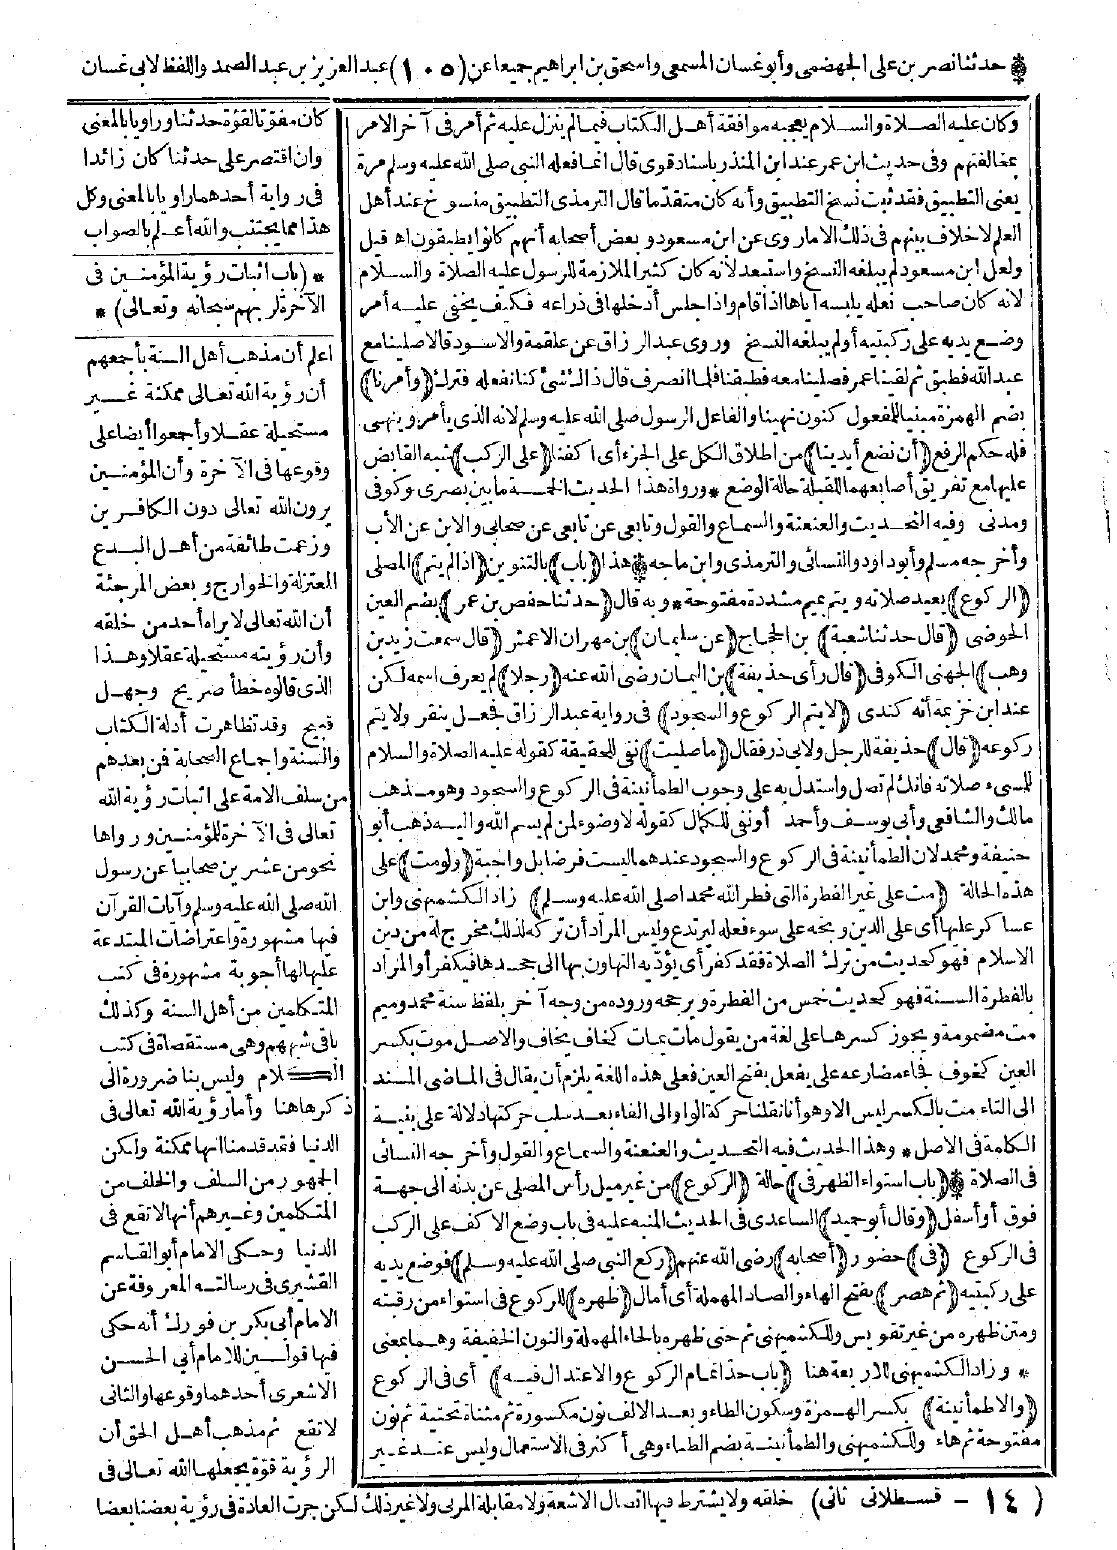 * حدثنا نصر بن على الجهضمى وأبو غسان المسمعى واسحق بن ابراهيم جميعا عن (١٠٥) عبد العزيز بن عبد الصمد واللفظ لابى غسان
وكان عليه الصلاة والسلام يعجبه موافقة أهل الكتاب فيما لم ينزل عليه ثم أمر فى آخر الامر
بمخالفتهم وفى حديث ابن عمر عند ابن المنذر باسناد قوى قال انما فعله النبى صلى الله عليه وسلم مرة
يعنى التطبيق فقد ثبت نسخ التطبيق وأنه كان متقدما قال الترمذى التطبيق منسوخ عند أهل
العلم لاخلاف بينهم فى ذلك الا ماروى عن ابن مسعود وبعض أصحابه أنهم كانوا يطبقون اه قيل
ولعل ابن مسعود لم يبلغه النسخ واستبعد لانه كان كثير الملازمة للرسول عليه الصلاة والسلام
لانه كان صاحب نعله يلبسه اياها اذا قام واذا جلس أدخلها فى ذراعه فكيف يخفى عليه أمر
وضع يديه على ركبتيه أو لم يبلغه النسخ وروى عبد الرزاق عن علقمة والاسود قالا صلينا مع
عبد الله فطبق ثم لقينا عمر فصلينا معه فطبقنا فلما انصرف قال ذلك شئ كنا نفعله فترك (وأمرنا)
بضم الهمزة مبنيا للمفعول كنون نهينا والفاعل الرسول صلى الله عليه وسلم لانه الذى يأمر وينهى
فله حكم الرفع (أن نضع أيدينا) من اطلاق الكل على الجزء أى أكفنا (على الركب) شبه القابض
عليها مع تفريق أصابعهما للقبلة حالة الوضع * ورواة هذا الحديث الخمسة ما بين بصرى وكوفى
ومدنى وفيه التحديث والعنعنة والسماع والقول وتابعى عن تابعى عن صحابى والابن عن الأب
وأخرجه مسلم وأبو داود والنسائى والترمذى وابن ماجه * هذا (باب) بالتنوين (اذا لم يتم) المصلى
(الركوع) يعيد صلاته ويتم بميم مشددة مفتوحة * وبه قال (حدثنا حفص بن عمر) بضم العين
الحوضى (قال حدثنا شعبة) بن الحجاج (عن سليمان) بن مهران الاعمش (قال سمعت زيد بن
وهب) الجهنى الكوفى (قال رأى حذيفة) بن اليمان رضى الله عنه (رجلا) لم يعرف اسمه لكن
عند ابن خزيمة أنه كندى (لا يتم الركوع والسجود) فى رواية عبد الرزاق فجعل ينقر ولا يتم
ركوعه (قال) حذيفة للرجل ولابى ذر فقال (ما صليت) نفى للحقيقة كقوله عليه الصلاة والسلام
للمسىء صلاته فانك لم تصل واستدل به على وجوب الطمأنينة فى الركوع والسجود وهو مذهب
مالك والشافعى وأبى يوسف وأحمد أو نفى للكمال كقوله لا وضوء لمن لم يسم الله واليه ذهب أبو
حنيفة ومحمد لان الطمأنينة فى الركوع والسجود عندهما ليست فرضا بل واجبة (ولو مت) على
هذه الحالة (مت على غير الفطرة التى فطر الله محمدا صلى الله عليه وسلم) زاد الكشميهنى وابن
عساكر عليها أى على الدين وبخه على سوء فعله ليرتدع وليس المراد أن تركه لذلك مخرج له من دين
الاسلام فهو كحديث من ترك الصلاة فقد كفر أى يؤديه التهاون بها الى جحدها فيكفر أو المراد
بالفطرة السنة فهو كحديث خمس من الفطرة ويرجحه وروده من وجه آخر بلفظ سنة محمد وميم
مت مضمومة ويجوز كسرها على لغة من يقول مات يمات كخاف يخاف والاصل موت بكسر
العين كخوف فجاء مضارعه على يفعل بفتح العين فعلى هذه اللغة يلزم أن يقال فى الماضى المسند
الى التاء مت بالكسر ليس الا وهو أنا نقلنا حركة الواو الى الفاء بعد سلب حركتها دلالة على بقية
الكلمة فى الاصل * وهذا الحديث فيه التحديث والعنعنة والسماع والقول وأخرجه النسائى
فى الصلاة * (باب استواء الظهر فى) حالة (الركوع) من غير ميل رأس المصلى عن بدنه الى جهة
فوق أو أسفل (وقال أبو حميد) الساعدى فى الحديث المنبه عليه فى باب وضع الاكف على الركب
فى الركوع (فى) حضور (أصحابه) رضى الله عنهم (ركع النبى صلى الله عليه وسلم) فوضع يديه
على ركبتيه (ثم هصر) بفتح الهاء والصاد المهملة أى أمال (ظهره) للركوع فى استواء من رقبته
ومتن ظهره من غير تقويس وللكشميهنى ثم حنى ظهره بالحاء المهملة والنون الخفيفة وهما بمعنى
* وزاد الكشميهنى للاربعة هنا (باب حد اتمام الركوع والاعتدال فيه) أى فى الركوع
(والاطمأنينة) بكسر الهمزة وسكون الطاء وبعد الالف نون مكسورة ثم مثناة تحتية ثم نون
مفتوحة ثم هاء وللكشميهنى والطمأنينة بضم الطاء وهى أكثر فى الاستعمال وليس عند غير
كان مفوتا لقوة حدثنا وراويا بالمعنى
وان اقتصر على حدثنا كان زائدا
فى رواية أحدهما راويا بالمعنى وكل
هذا مما يجتنب والله أعلم بالصواب
* (باب اثبات رؤية المؤمنين فى
الآخرة لربهم سبحانه وتعالى) *
اعلم أن مذهب أهل السنة بأجمعهم
أن رؤية الله تعالى ممكنة غير
مستحيلة عقلا وأجمعوا أيضا على
وقوعها فى الآخرة وأن المؤمنين
يرون الله تعالى دون الكافرين
وزعمت طائفة من أهل البدع
المعتزلة والخوارج وبعض المرجئة
أن الله تعالى لا يراه أحد من خلقه
وأن رؤيته مستحيلة عقلا وهذا
الذى قالوه خطأ صريح وجهل
قبيح وقد تظاهرت أدلة الكتاب
والسنة واجماع الصحابة فمن بعدهم
من سلف الامة على اثبات رؤية الله
تعالى فى الآخرة للمؤمنين ورواها
نحو من عشرين صحابيا عن رسول
الله صلى الله عليه وسلم وآيات القرآن
فيها مشهورة واعتراضات المبتدعة
عليها لها أجوبة مشهورة فى كتب
المتكلمين من أهل السنة وكذلك
باقى شبههم وهى مستقصاة فى كتب
الكلام وليس بنا ضرورة الى
ذكرها هنا وأما رؤية الله تعالى فى
الدنيا فقد قدمنا انها ممكنة ولكن
الجمهور من السلف والخلف من
المتكلمين وغيرهم أنها لا تقع فى
الدنيا وحكى الامام أبو القاسم
القشيرى فى رسالته المعروفة عن
الامام أبى بكر بن فورك أنه حكى
فيها قولين للامام أبى الحسن
الاشعرى أحدهما وقوعها والثانى
لا تقع ثم مذهب أهل الحق أن
الرؤية قوة يجعلها الله تعالى فى
(١٤ - قسطلانى ثانى) خلقه ولا يشترط فيها اتصال الاشعة ولا مقابلة المرئى ولا غير ذلك لكن جرت العادة فى رؤية بعضنا بعضا